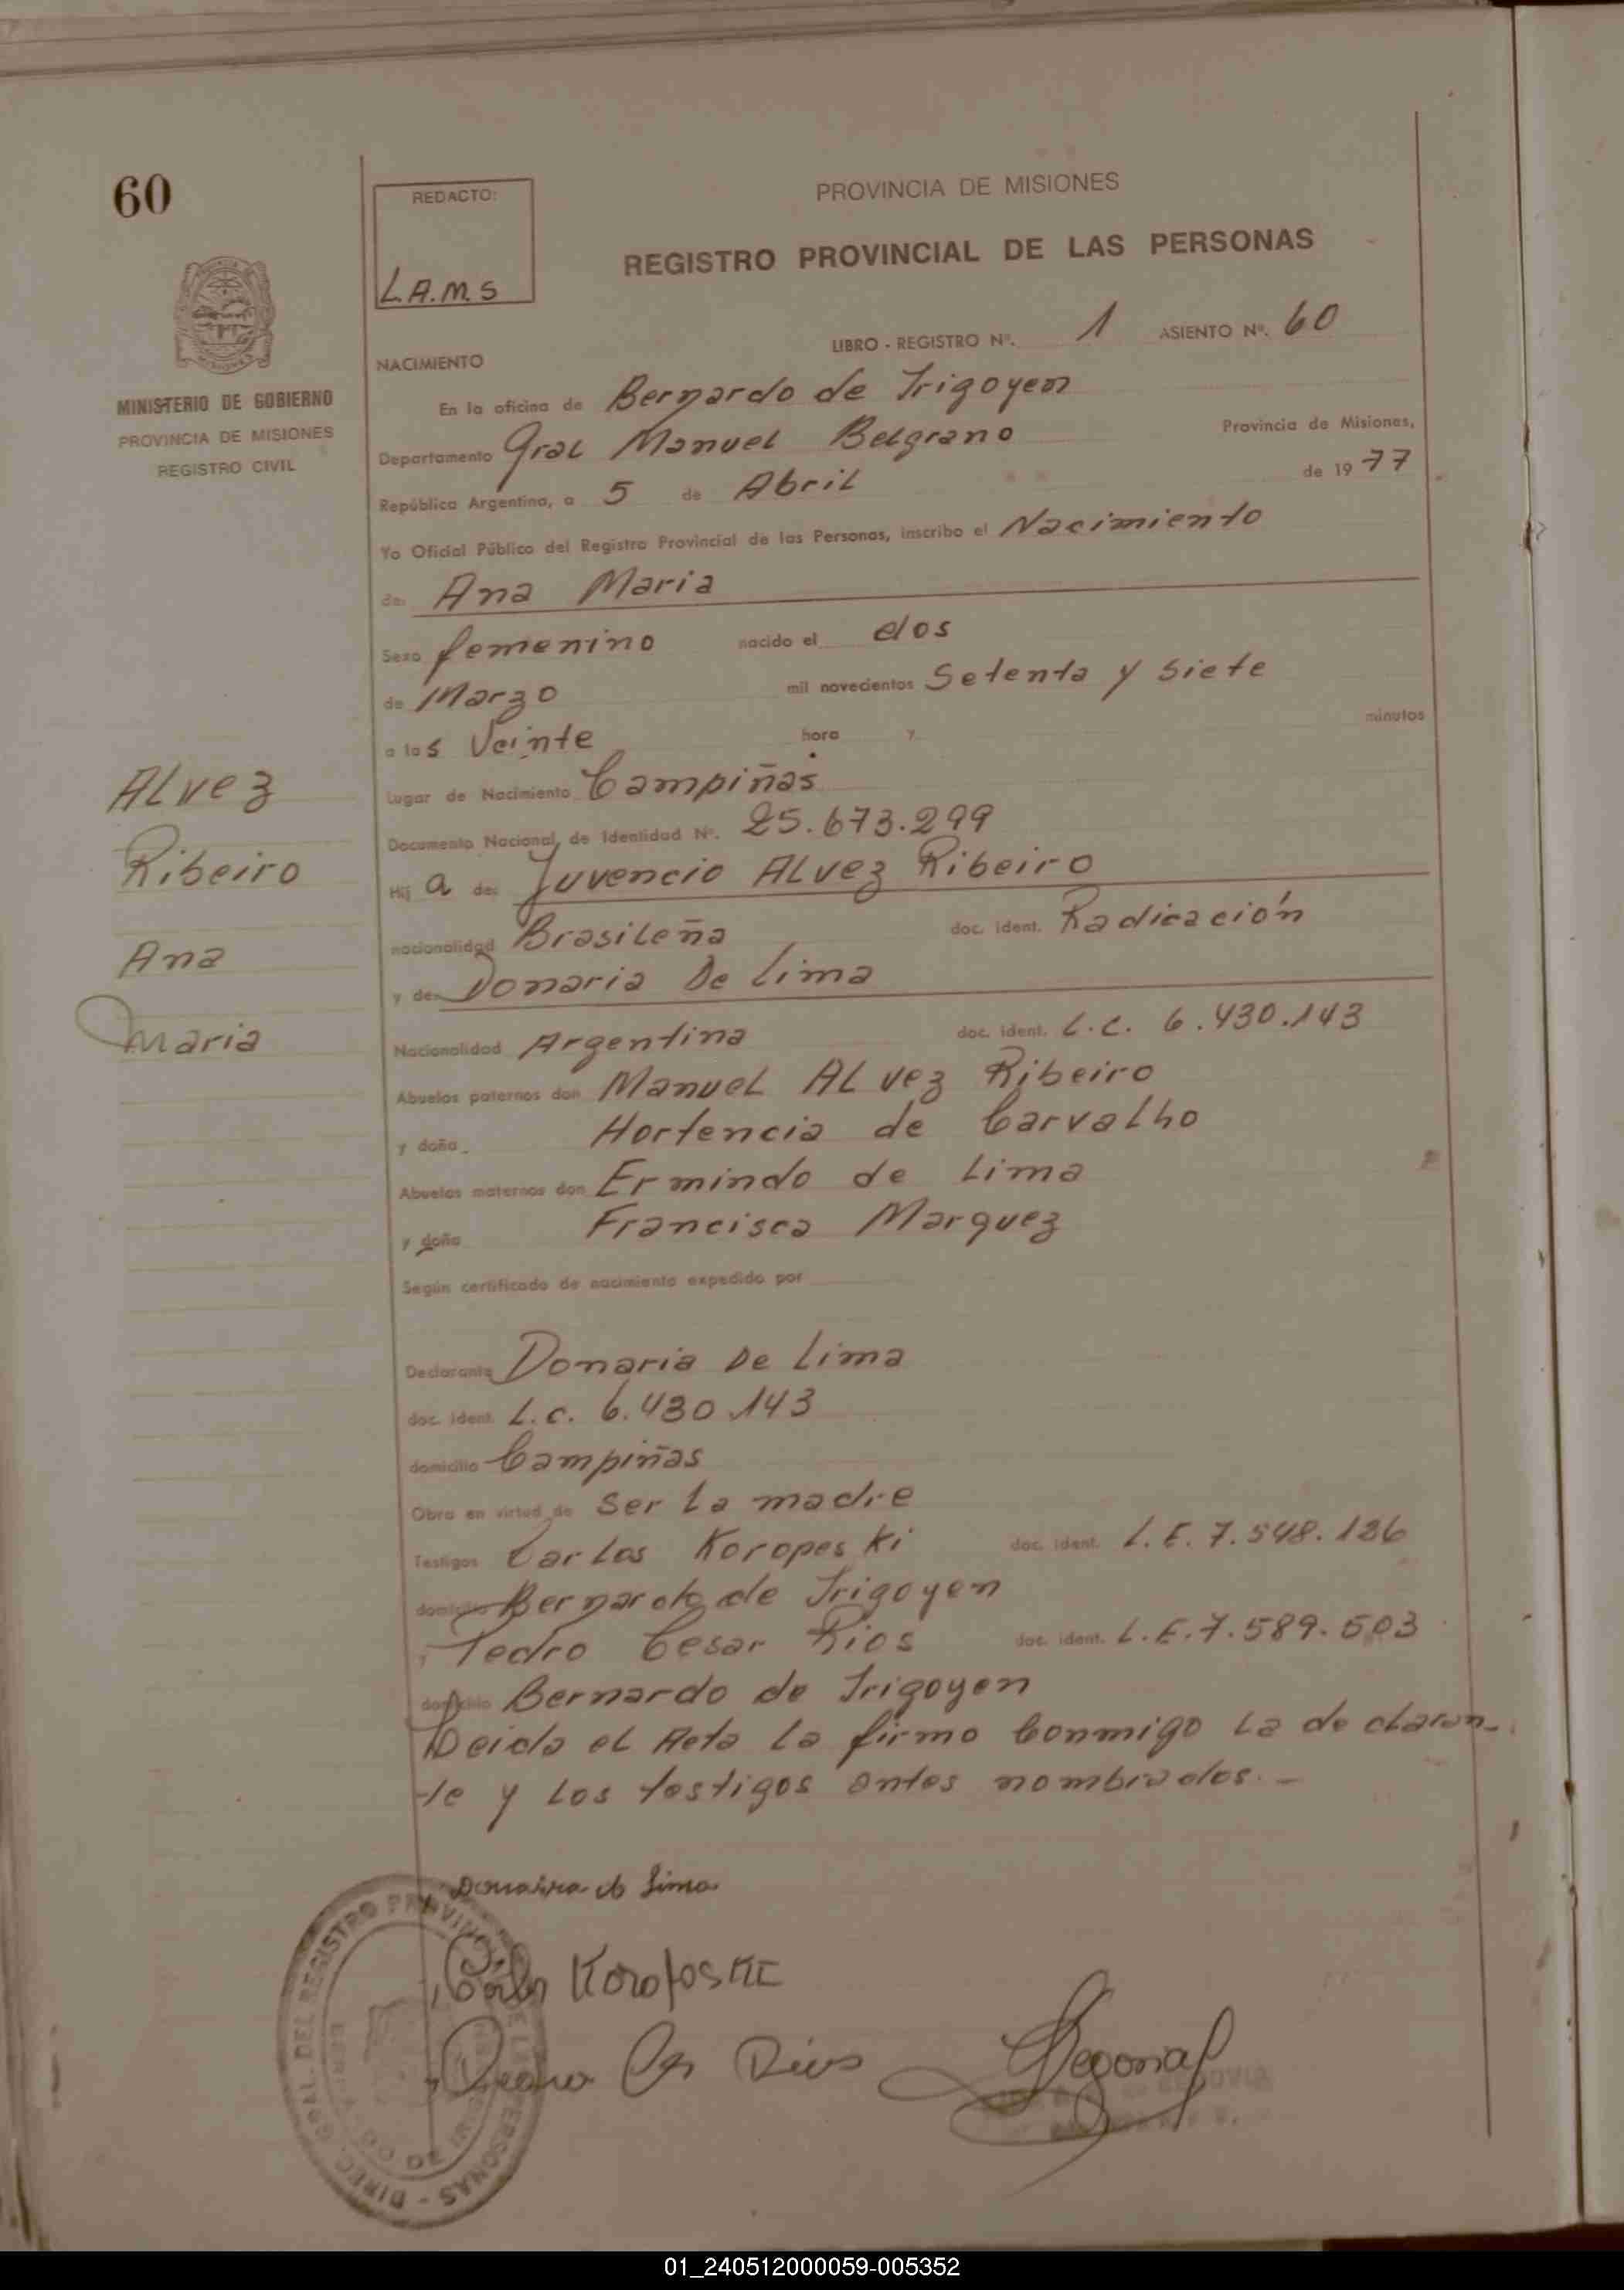 60
REDACTO:
L.A.M.S
PROVINCIA DE MISIONES
REGISTRO PROVINCIAL DE LAS PERSONAS
LIBRO - REGISTRO Nº. 1 ASIENTO Nº. 60
NACIMIENTO
MINISTERIO DE GOBIERNO
PROVINCIA DE MISIONES
REGISTRO CIVIL
En la oficina de Bernardo de Irigoyen
Departamento Gral Manuel Belgrano Provincia de Misiones,
República Argentina, a 5 de Abril de 1977
Yo Oficial Público del Registro Provincial de las Personas, inscribo el Nacimiento
de: Ana Maria
Sexo femenino nacido el dos
de Marzo mil novecientos Setenta y siete
a las Veinte hora y minutos
Lugar de Nacimiento Campiñas
Documento Nacional de Identidad Nº. 25.673.299
Hij a de: Juvencio ALvez Ribeiro
nacionalidad Brasileña doc. ident. Radicación
y de: Donaria De Lima
Nacionalidad Argentina doc. ident. L.C. 6.430.143
Abuelos paternos don Manuel ALvez Ribeiro
y doña Hortencia de Carvalho
Abuelos maternos don Ermindo de Lima
y doña Francisca Marquez
Según certificado de nacimiento expedido por
Declarante Donaria De Lima
doc. ident. L.C. 6.430.143
domicilio Campiñas
Obra en virtud de ser La madre
Testigos Carlos Koropeski doc. ident. L.E. 7.548.126
domicilio Bernardo de Irigoyen
y Pedro Cesar Rios doc. ident. L.E. 7.589.503
domicilio Bernardo de Irigoyen
Leida el Acta la firmo Conmigo la declaran-
-te y los testigos antes nombrados.-
ALvez
Ribeiro
Ana
Maria
Donaria de Lima
Koroposki
DIREC. GRAL. DEL REGISTRO PROVINCIAL DE LAS PERSONAS
01_240512000059-005352